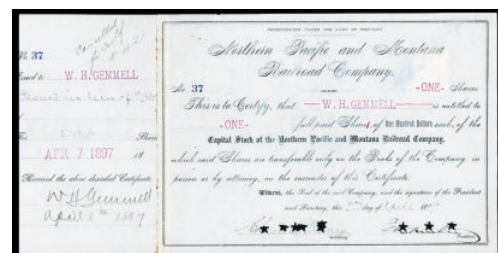 Cancelled
No 37
Issued to W. H. GEMMELL
For
APR 7 1897 18
Received the above described Certificate
W H Gemmell
April 1897
INCORPORATED UNDER THE LAWS OF MONTANA
Northern Pacific and Montana
Railroad Company.
No 37 -ONE- Shares
This is to Certify, that W. H. GEMMELL is entitled to
-ONE- full paid Shares, of One Hundred Dollars each, of the
Capital Stock of the Northern Pacific and Montana Railroad Company,
which said Shares are transferable only on the Books of the Company in
person or by attorney, on the surrender of this Certificate.
Witness, the Seal of the said Company, and the signatures of the President
and Secretary, this day of April
Secretary President